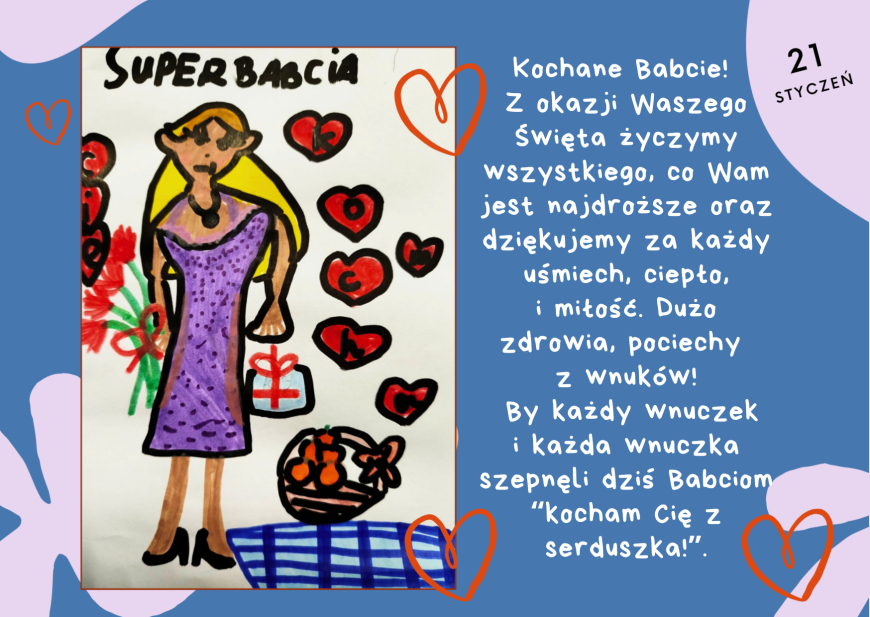 SUPERBABCIA
k
o
c
h
Kochane Babcie!
Z okazji Waszego
Święta życzymy
wszystkiego, co Wam
jest najdroższe oraz
dziękujemy za każdy
uśmiech, ciepło,
i miłość. Dużo
zdrowia, pociechy
z wnuków!
By każdy wnuczek
i każda wnuczka
szepnęli dziś Babciom
“Kocham Cię z
serduszka!”.
21
STYCZEŃ